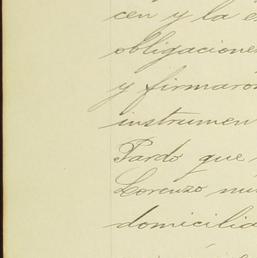 cen y la
obligacione
y firmaro
instrumen
Pardo que
Lorenzo
domicilia